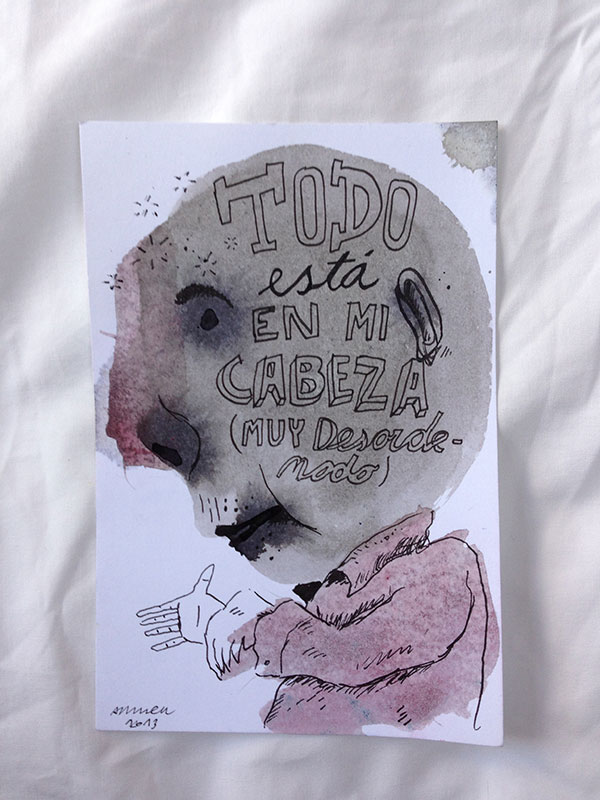 TODO
está
EN MI
CABEZA
(MUY Desorde-
nado)
2013